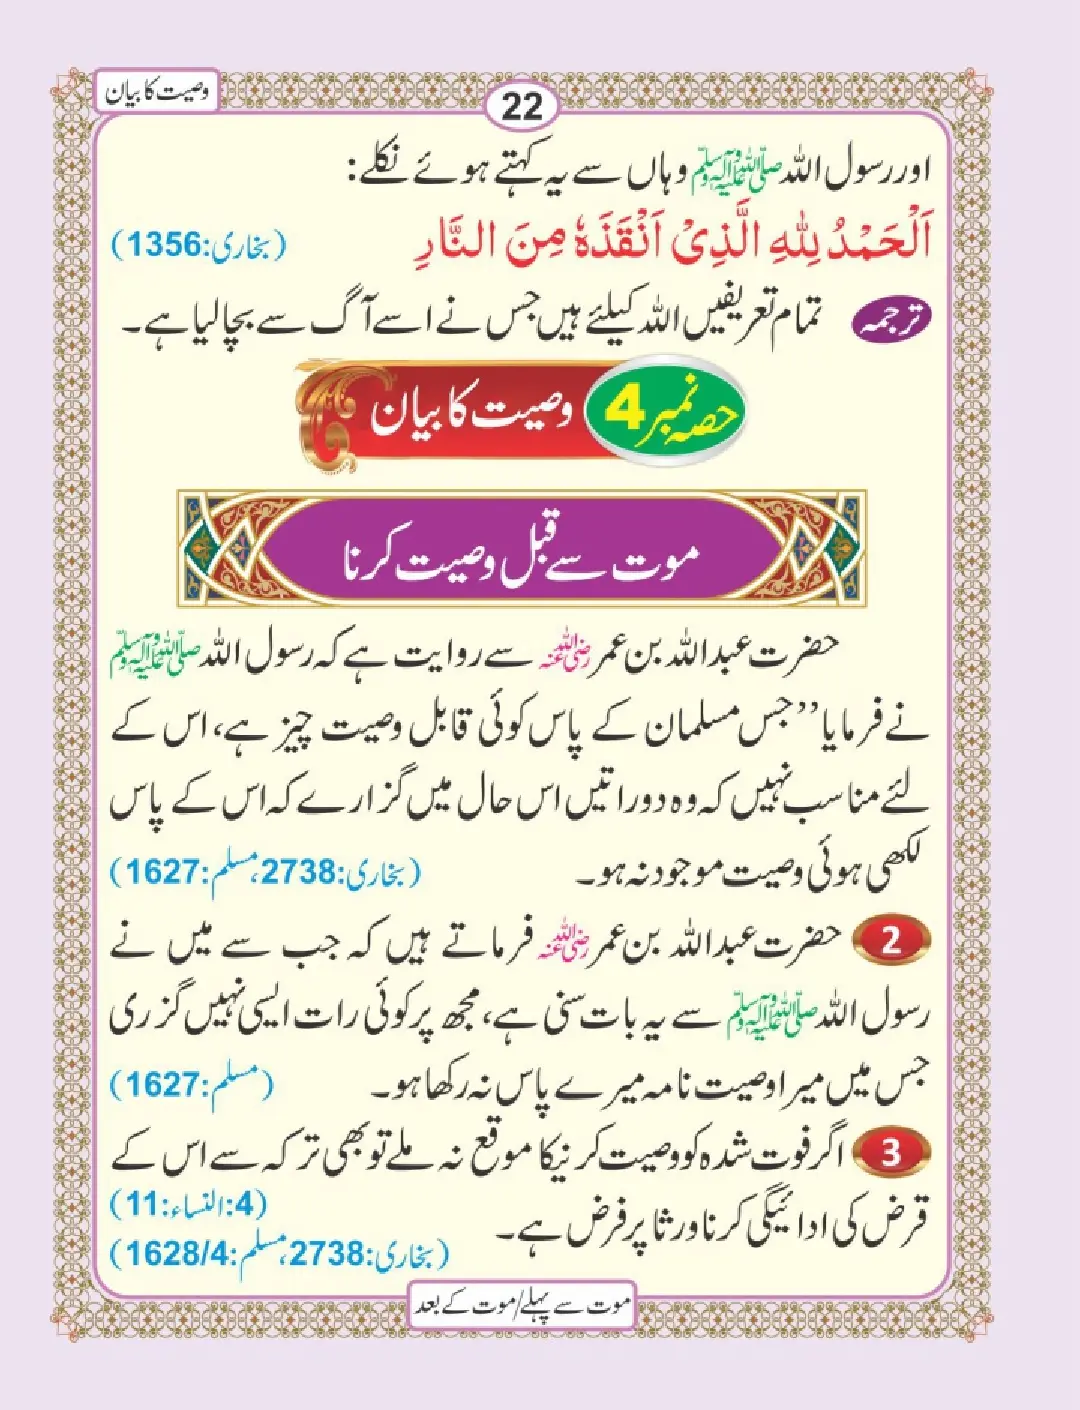 وصیت کا بیان
22
اور رسول اللہ ﷺ وہاں سے یہ کہتے ہوئے نکلے:
اَلْحَمْدُ لِلّٰهِ الَّذِیْ اَنْقَذَہٗ مِنَ النَّارِ (بخاری:1356)
ترجمہ تمام تعریفیں اللہ کیلئے ہیں جس نے اسے آگ سے بچا لیا ہے۔
حصہ نمبر 4 وصیت کا بیان
موت سے قبل وصیت کرنا
حضرت عبداللہ بن عمر رضی اللہ عنہ سے روایت ہے کہ رسول اللہ ﷺ
نے فرمایا ’’جس مسلمان کے پاس کوئی قابل وصیت چیز ہے، اس کے
لئے مناسب نہیں کہ وہ دو راتیں اس حال میں گزارے کہ اس کے پاس
لکھی ہوئی وصیت موجود نہ ہو۔ (بخاری:2738، مسلم:1627)
2 حضرت عبداللہ بن عمر رضی اللہ عنہ فرماتے ہیں کہ جب سے میں نے
رسول اللہ ﷺ سے یہ بات سنی ہے، مجھ پر کوئی رات ایسی نہیں گزری
جس میں میرا وصیت نامہ میرے پاس نہ رکھا ہو۔ (مسلم:1627)
3 اگر فوت شدہ کو وصیت کرنیکا موقع نہ ملے تو بھی ترکہ سے اس کے
قرض کی ادائیگی کرنا ورثا پر فرض ہے۔ (4:النساء:11)
(بخاری:2738، مسلم:1628/4)
موت سے پہلے/موت کے بعد